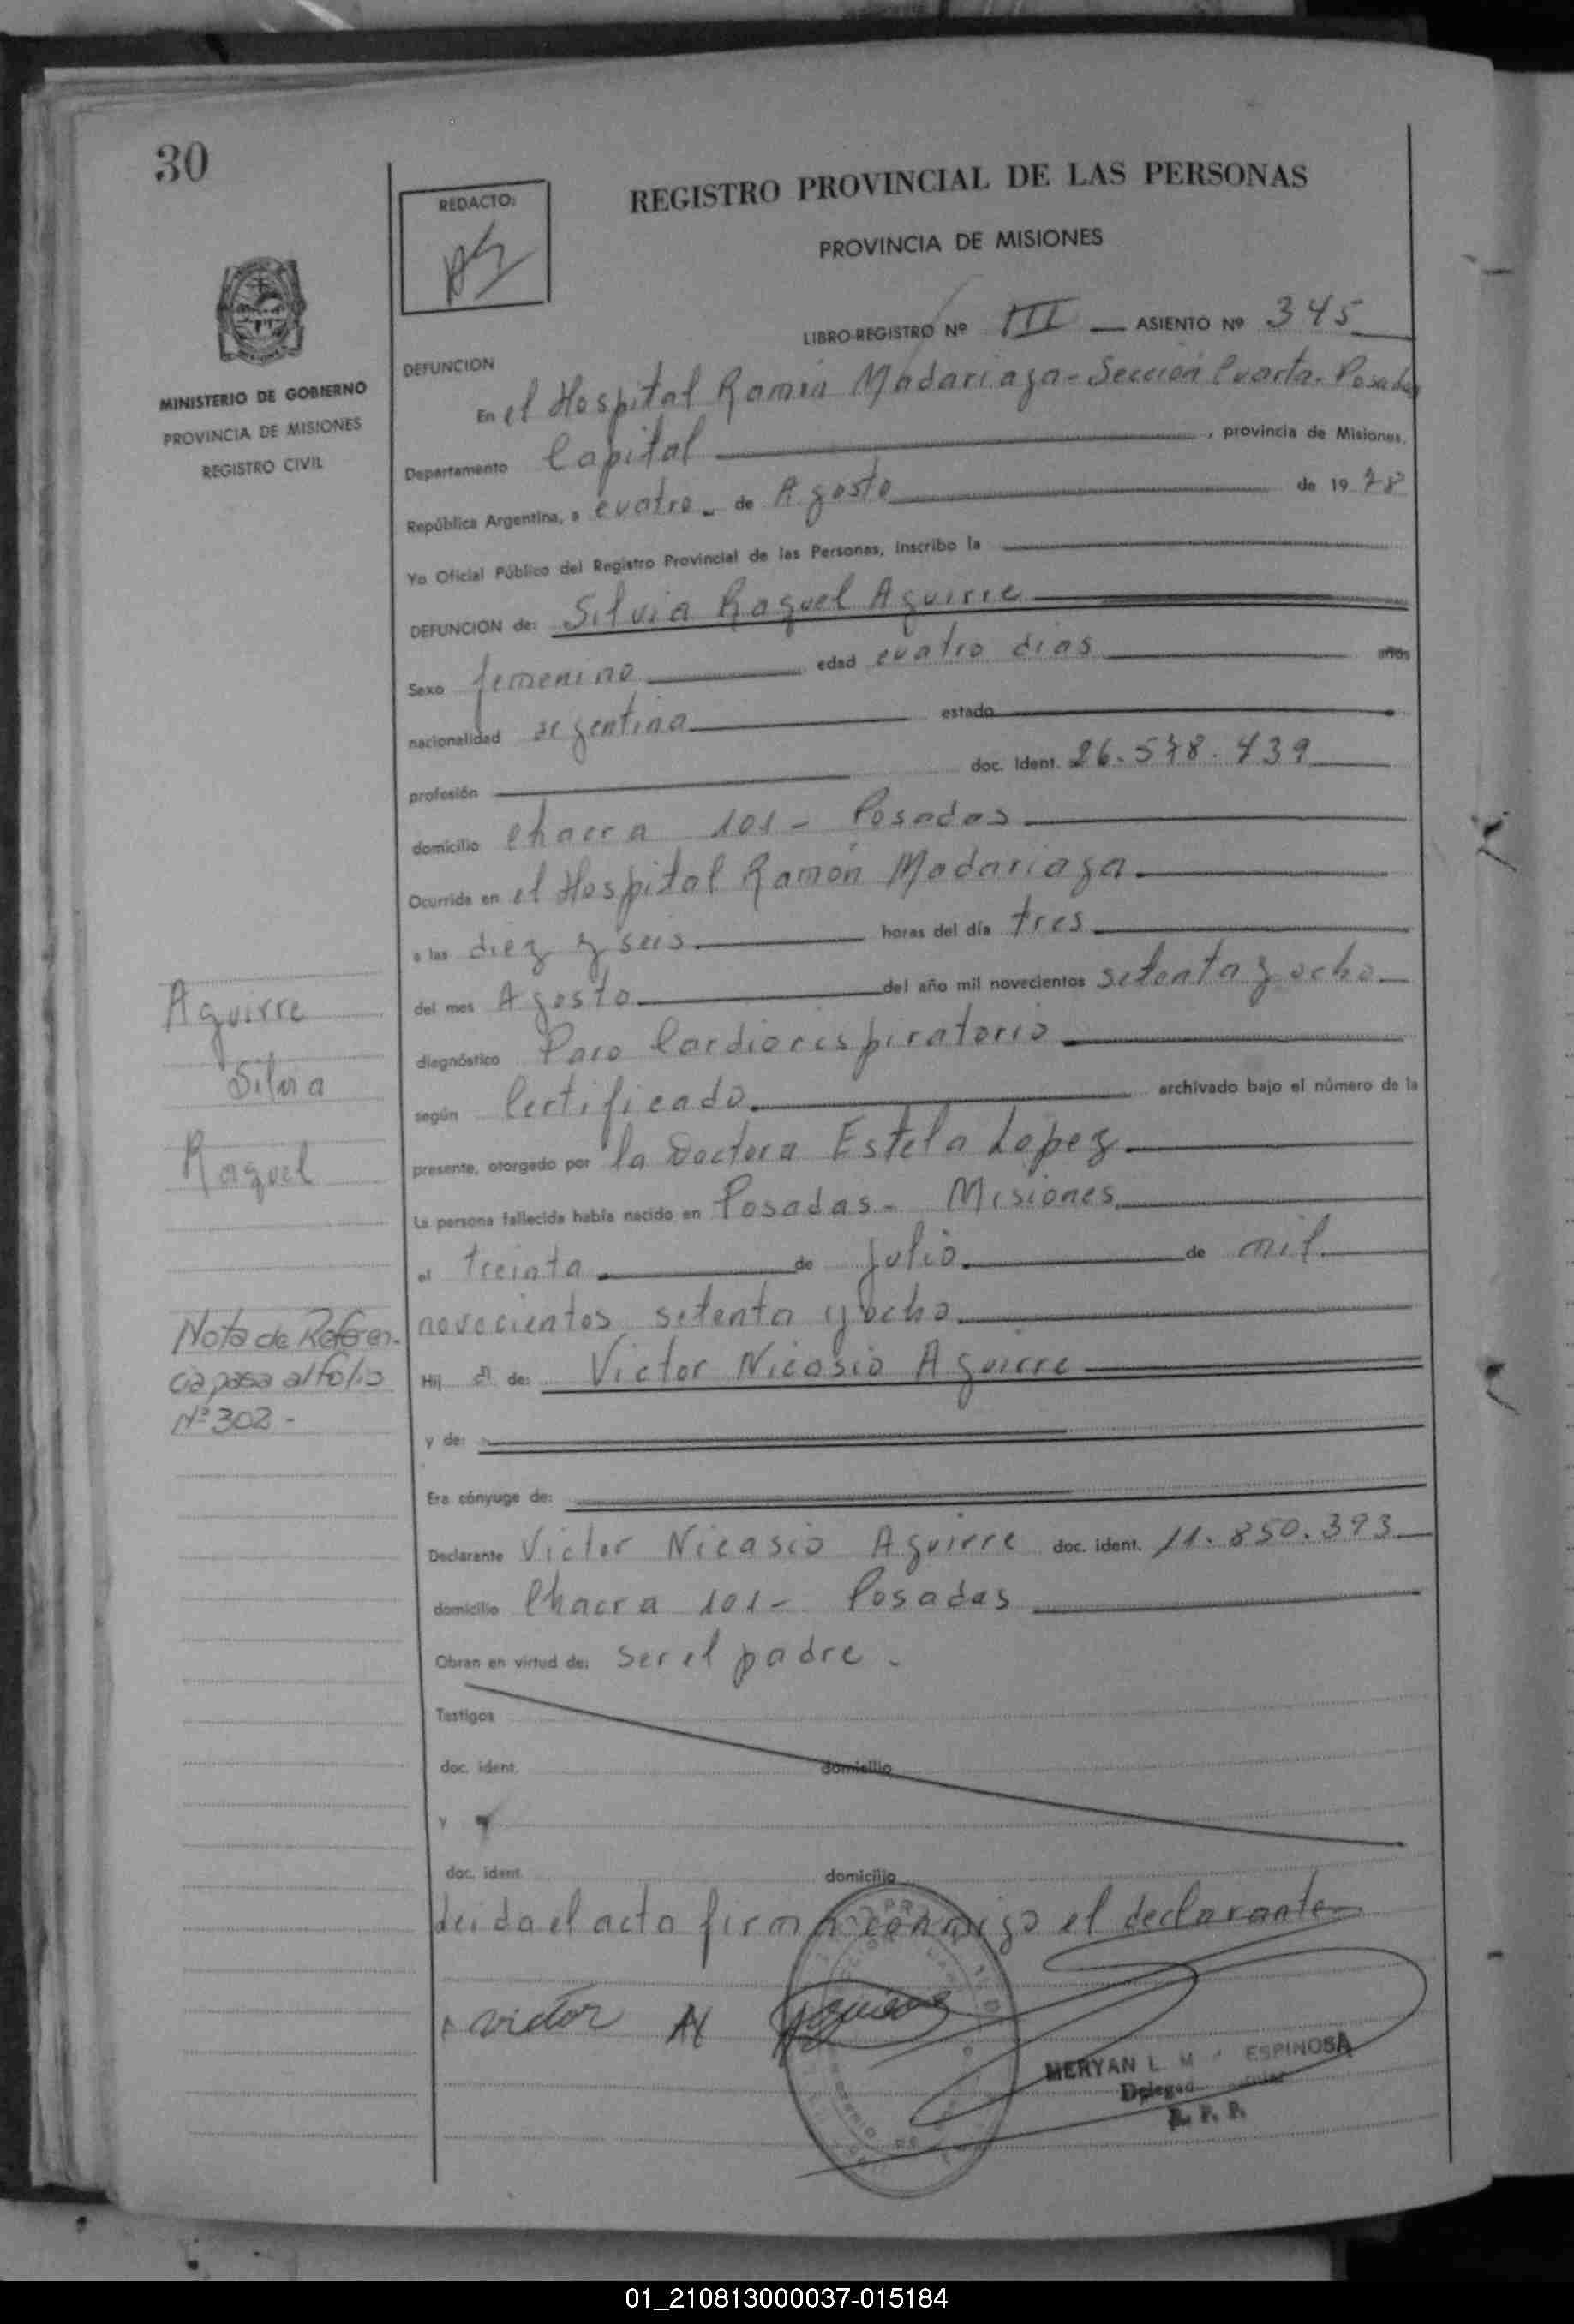 30
REDACTO:
REGISTRO PROVINCIAL DE LAS PERSONAS
PROVINCIA DE MISIONES
LIBRO-REGISTRO Nº III ASIENTO Nº 345
MINISTERIO DE GOBIERNO
PROVINCIA DE MISIONES
REGISTRO CIVIL
DEFUNCION
En el Hospital Ramón Madariaga - Sección Cuarta - Posadas
Departamento Capital, provincia de Misiones,
República Argentina, a cuatro - de Agosto de 1978
Yo Oficial Público del Registro Provincial de las Personas, inscribo la
DEFUNCION de: Silvia Raquel Aguirre
Sexo femenino edad cuatro dias años
nacionalidad argentina estado
profesión doc. Ident. 26.578.439
domicilio Chacra 101 - Posadas
Ocurrida en el Hospital Ramón Madariaga
a las diez y seis horas del día tres
del mes Agosto del año mil novecientos setenta y ocho
diagnóstico Paro Cardiorespiratorio
según Certificado archivado bajo el número de la
presente, otorgado por la Doctora Estela Lopez
La persona fallecida había nacido en Posadas - Misiones
el treinta de julio de mil
novecientos setenta y ocho
Hij a de: Victor Nicasio Aguirre
y de:
Era cónyuge de:
Declarante Victor Nicasio Aguirre doc. ident. 11.850.393
domicilio Chacra 101 - Posadas
Obran en virtud de: ser el padre.
Testigos
doc. ident. domicilio
y
doc. ident. domicilio
Leida el acta firma conmigo el declarante
victor N Aguirre
MERYAN L. M ESPINOSA
R. P. P.
Aguirre
Silvia
Raquel
Nota de Referen-
cia pasa al folio
Nº 302 -
01_210813000037-015184